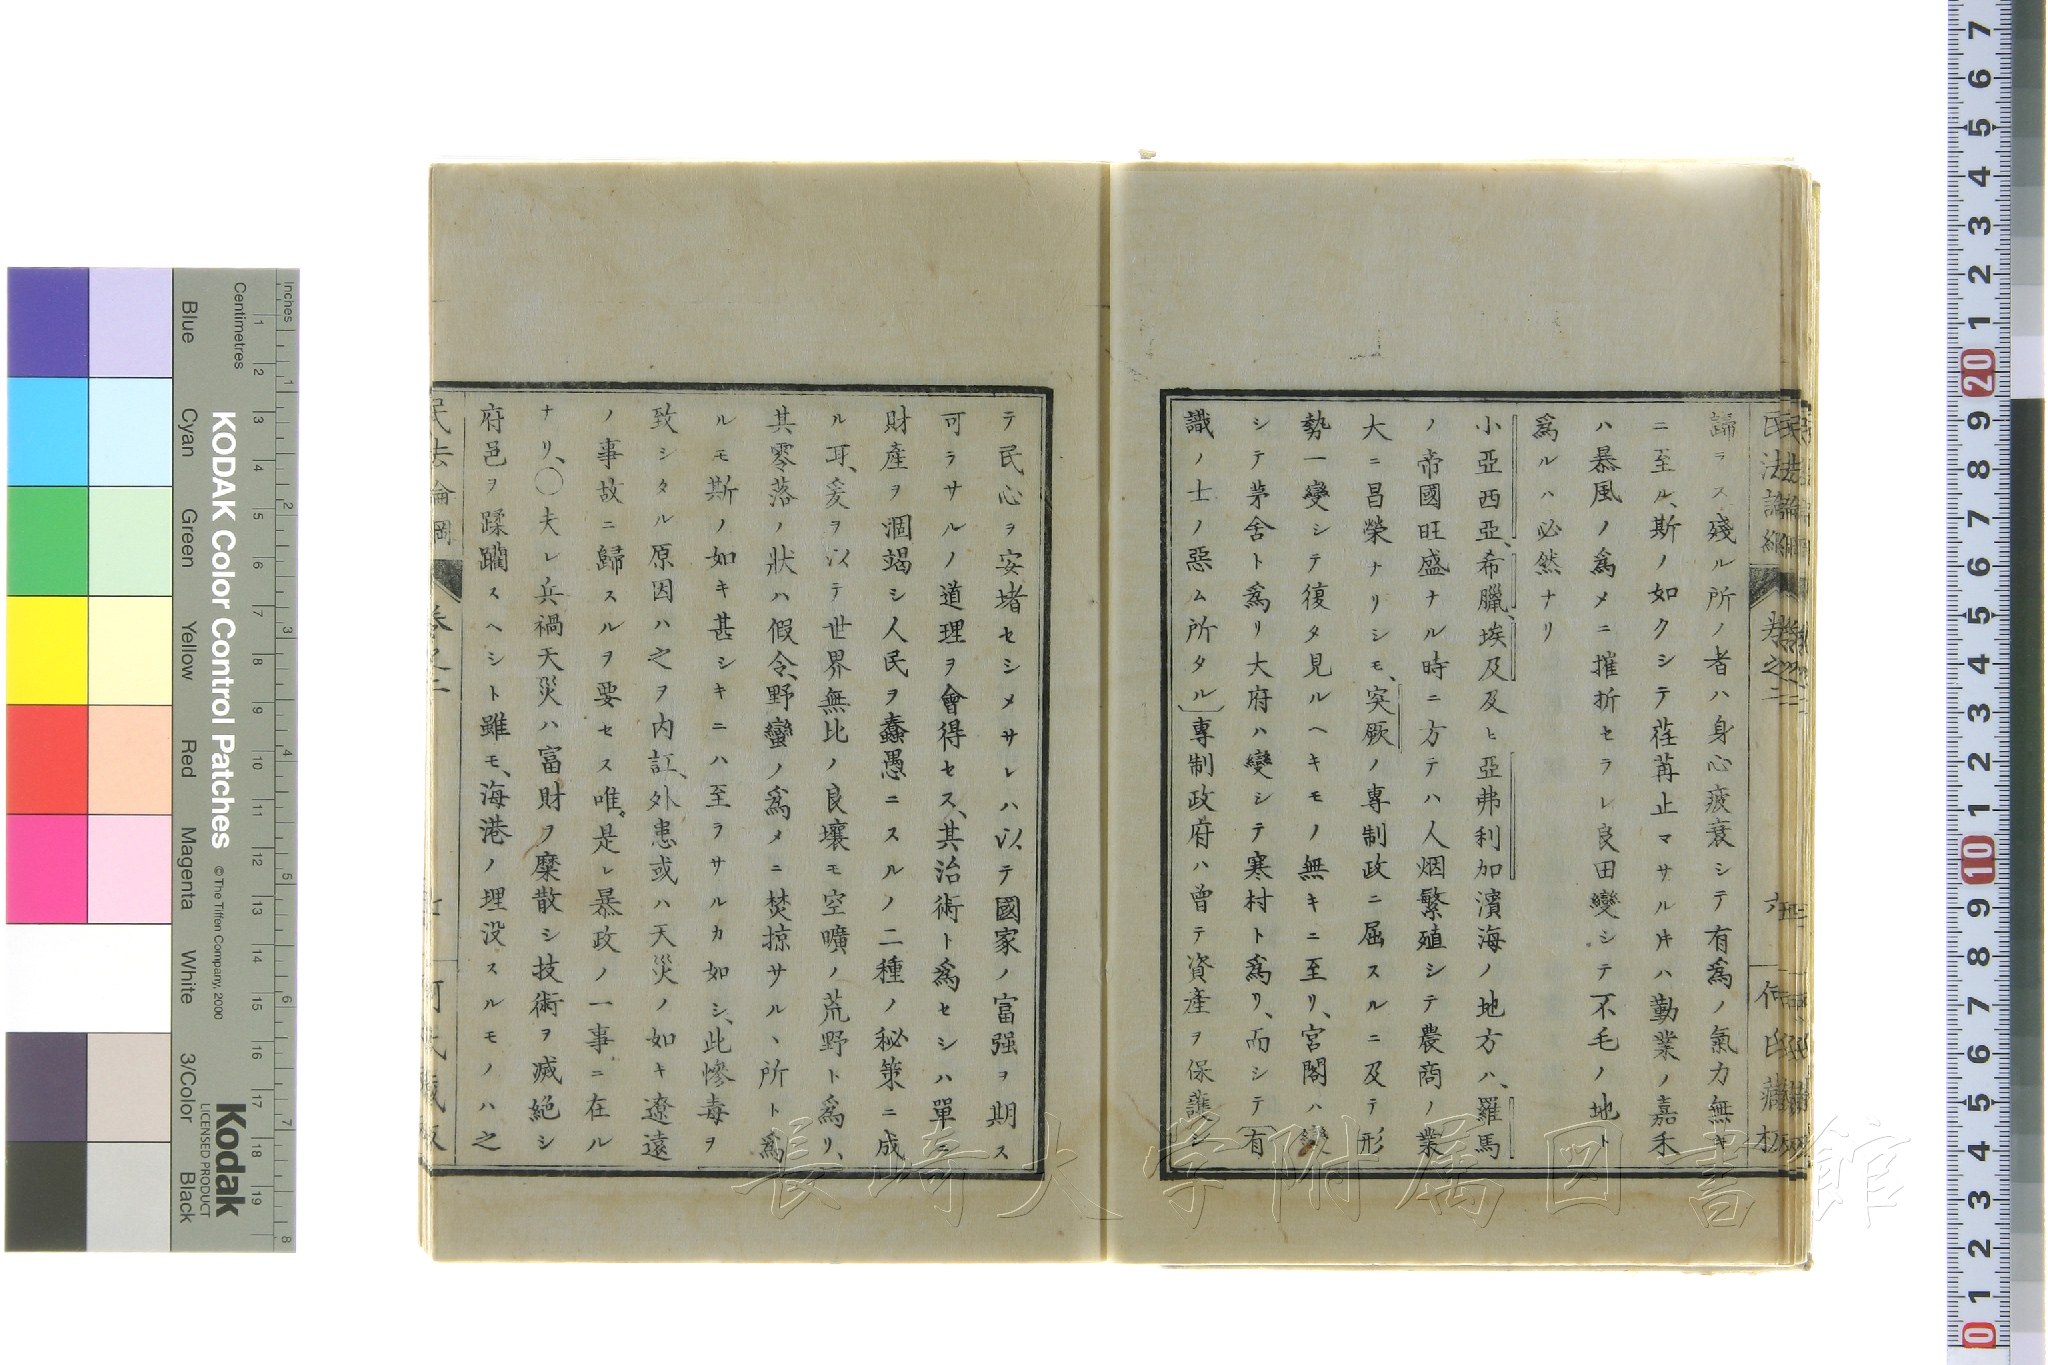 歸ラス殘ル所ノ者ハ身心疲衰シテ有爲ノ氣力無キ
ニ至ル、斯ノ如クシテ荏苒止マサル片ハ勤業ノ嘉禾
ハ暴風ノ爲メニ摧折セラレ良田變シテ不毛ノ地ト
爲ルハ必然ナリ
小亞西亞、希臘、埃及及ヒ亞弗利加濱海ノ地方ハ、羅馬
ノ帝國旺盛ナル時ニ方テハ人烟繁殖シテ農商ノ業
大ニ昌榮ナリシモ、突厥ノ專制政ニ屈スルニ及テ形
勢一變シテ復タ見ルヘキモノ無キニ至リ、宮閣ハ變
シテ茅舍ト爲リ大府ハ變シテ寒村ト爲リ、而シテ(有
識ノ士ノ惡ム所タル)專制政府ハ曾テ資產ヲ保護シ
テ民心ヲ安堵セシメサレハ以テ國家ノ富强ヲ期ス
可ラサルノ道理ヲ會得セス、其治術ト爲セシハ單ニ
財產ヲ涸竭シ人民ヲ蠢愚ニスルノ二種ノ秘策ニ成
ル耳、爰ヲ以テ世界無比ノ良壤モ空曠ノ荒野ト爲リ、
其零落ノ狀ハ假令野蠻ノ爲メニ焚掠サルヽ所ト爲
ルモ斯ノ如キ甚シキニハ至ラサルカ如シ、此慘毒ヲ
致シタル原因ハ之ヲ内訌、外患或ハ天災ノ如キ遼遠
ノ事故ニ歸スルヲ要セス唯是レ暴政ノ一事ニ在ル
ナリ、〇夫レ兵禍天災ハ富財ヲ糜散シ技術ヲ滅絕シ
府邑ヲ蹂躪スヘシト雖モ、海港ノ埋没スルモノハ之
民法論綱 卷之二 何氏藏版
長崎大学附属図書館
KODAK Color Control Patches
© The Tiffen Company, 2000
Kodak
LICENSED PRODUCT
Inches
Centimetres
Blue Cyan Green Yellow Red Magenta White 3/Color Black